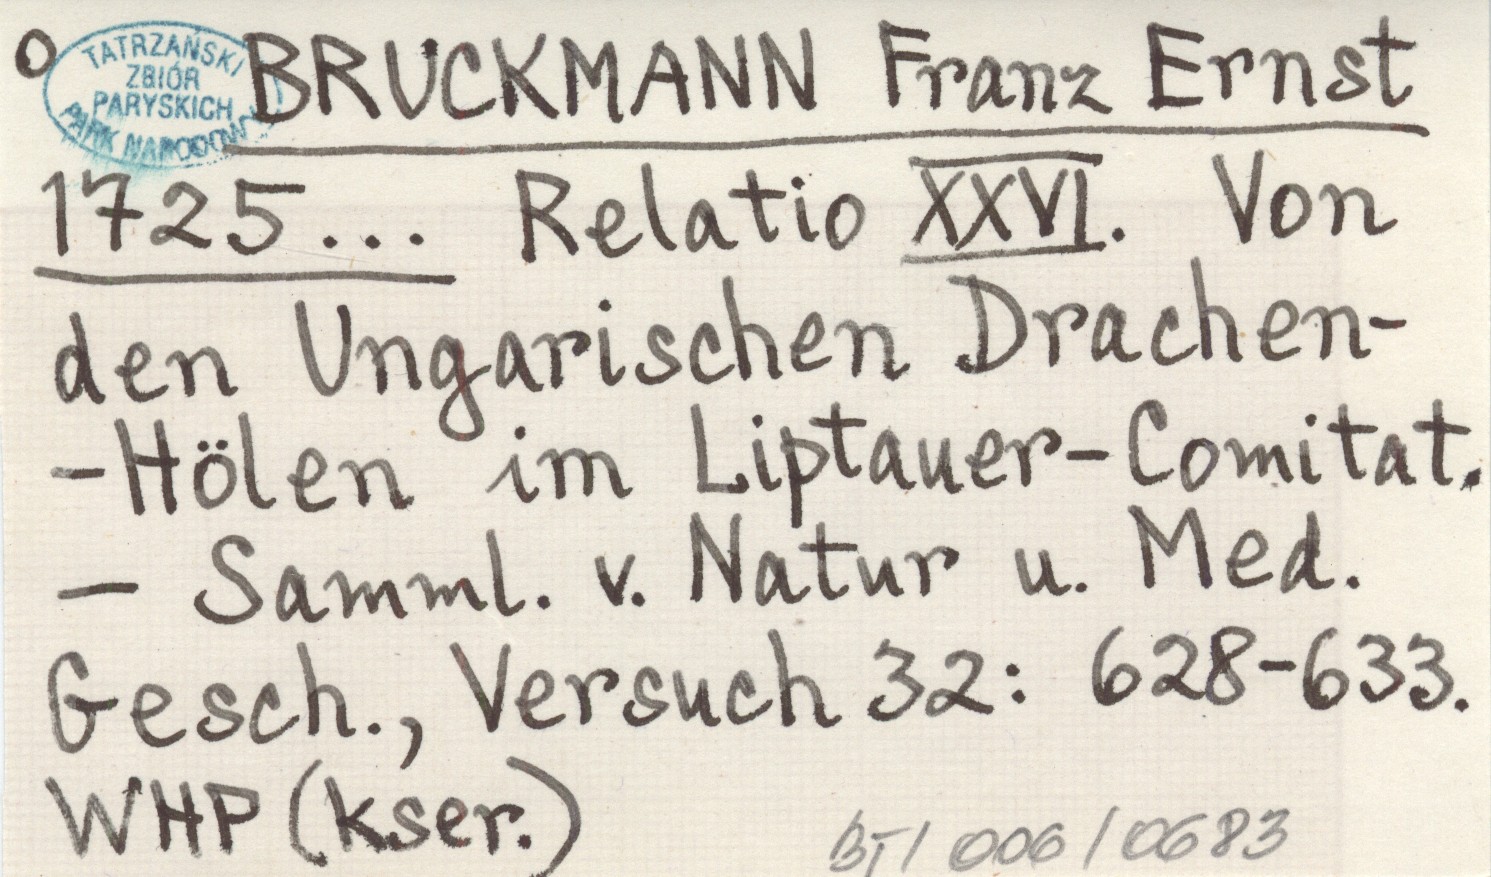 o BRUCKMANN Franz Ernst
TATRZAŃSKI
ZBIÓR
PARYSKICH
PARK NARODOWY
1725... Relatio XXVI. Von
den Ungarischen Drachen-
-Hölen im Liptauer-Comitat.
- Samml. v. Natur u. Med.
Gesch., Versuch 32: 628-633.
WHP (kser.)
BT/ 006/0683